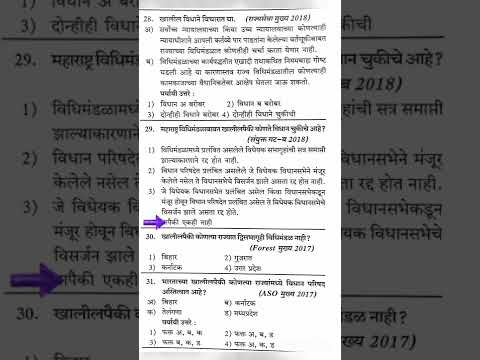 28. खालील विधाने विचारात घ्या. (राज्यसेवा मुख्य 2018)
अ) सर्वोच्च न्यायालयाच्या किंवा उच्च न्यायालयाच्या कोणत्याही
न्यायाधीशाने आपली कर्तव्ये पार पाडतांना केलेल्या वर्तणूकीबाबत
राज्याच्या विधिमंडळात कोणतीही चर्चा करता येणार नाही.
ब) विधिमंडळाच्या कार्यपद्धतीत एखादी तथाकथित नियमबाह्य गोष्ट
घडली आहे या कारणास्तव राज्य विधिमंडळातील कोणत्याही
कामकाजाच्या वैधानिकतेबर आक्षेप घेतला जाऊ शकतो.
पर्यायी उत्तरे :
1) विधान अ बरोबर 2) विधान ब बरोबर
3) दोन्हीही विधाने बरोबर 4) दोन्हीही विधाने चुकीची
29. महाराष्ट्र विधिमंडळाबाबत खालीलपैकी कोणते विधान चुकीचे आहे?
(संयुक्त गट-ब 2018)
1) विधिमंडळामध्ये प्रलंबित असलेले विधेयक सभागृहांची सत्र समाप्ती
झाल्याकारणाने रद्द होत नाही.
2) विधान परिषदेत प्रलंबित असलेले जे विधेयक विधानसभेने मंजूर
केलेले नसेल ते विधानसभेचे विसर्जन झाले असता रद्द होत नाही.
3) जे विधेयक विधानसभेत प्रलंबित असेल किंवा विधानसभेकडून
मंजूर होवून विधान परिषदेत प्रलंबित असेल ते विधेयक विधानसभेचे
विसर्जन झाले असता रद्द होते.
पैकी एकही नाही
30. खालीलपैकी कोणत्या राज्यात द्विसभागृही विधिमंडळ नाही?
(Forest मुख्य 2017)
1) बिहार 2) गुजरात
3) कर्नाटक 4) उत्तर प्रदेश
31. भारताच्या खालीलपैकी कोणत्या राज्यांमध्ये विधान परिषद
अस्तित्वात आहे? (ASO मुख्य 2017)
अ) बिहार ब) कर्नाटक
क) तेलंगणा ड) मध्यप्रदेश
पर्यायी उत्तरे :
1) फक्त अ, ब, क 2) फक्त अ, ब, ड
3) फक्त ब, क, ड 4) फक्त अ, क, ड